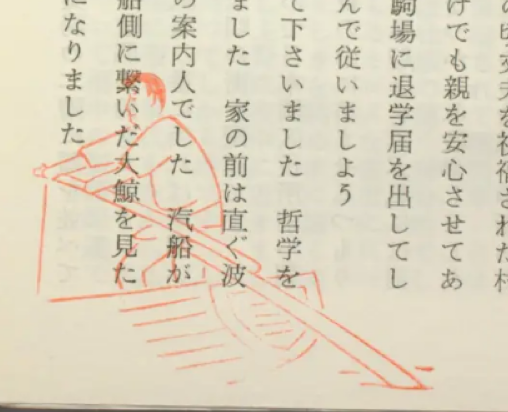 を祝福された
けでも親を安心させてあ
駒場に退学届を出してし
んで従いましよう
て下さいました　哲学を
ました　家の前は直ぐ波
の案内人でした　汽船が
船側に繋いだ大鯨を見た
になりました